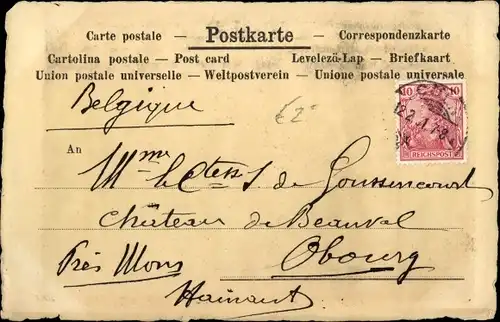 Carte postale — Postkarte — Correspondenzkarte
Cartolina postale — Post card Levelezö-Lap — Briefkaart
Union postale universelle — Weltpostverein — Unione postale universale
Belgique
€2
10 10
REICHSPOST
An
Mme la Ctesse J. de Goussencourt
Château de Beauval
Obourg
Près Mons
Hainaut